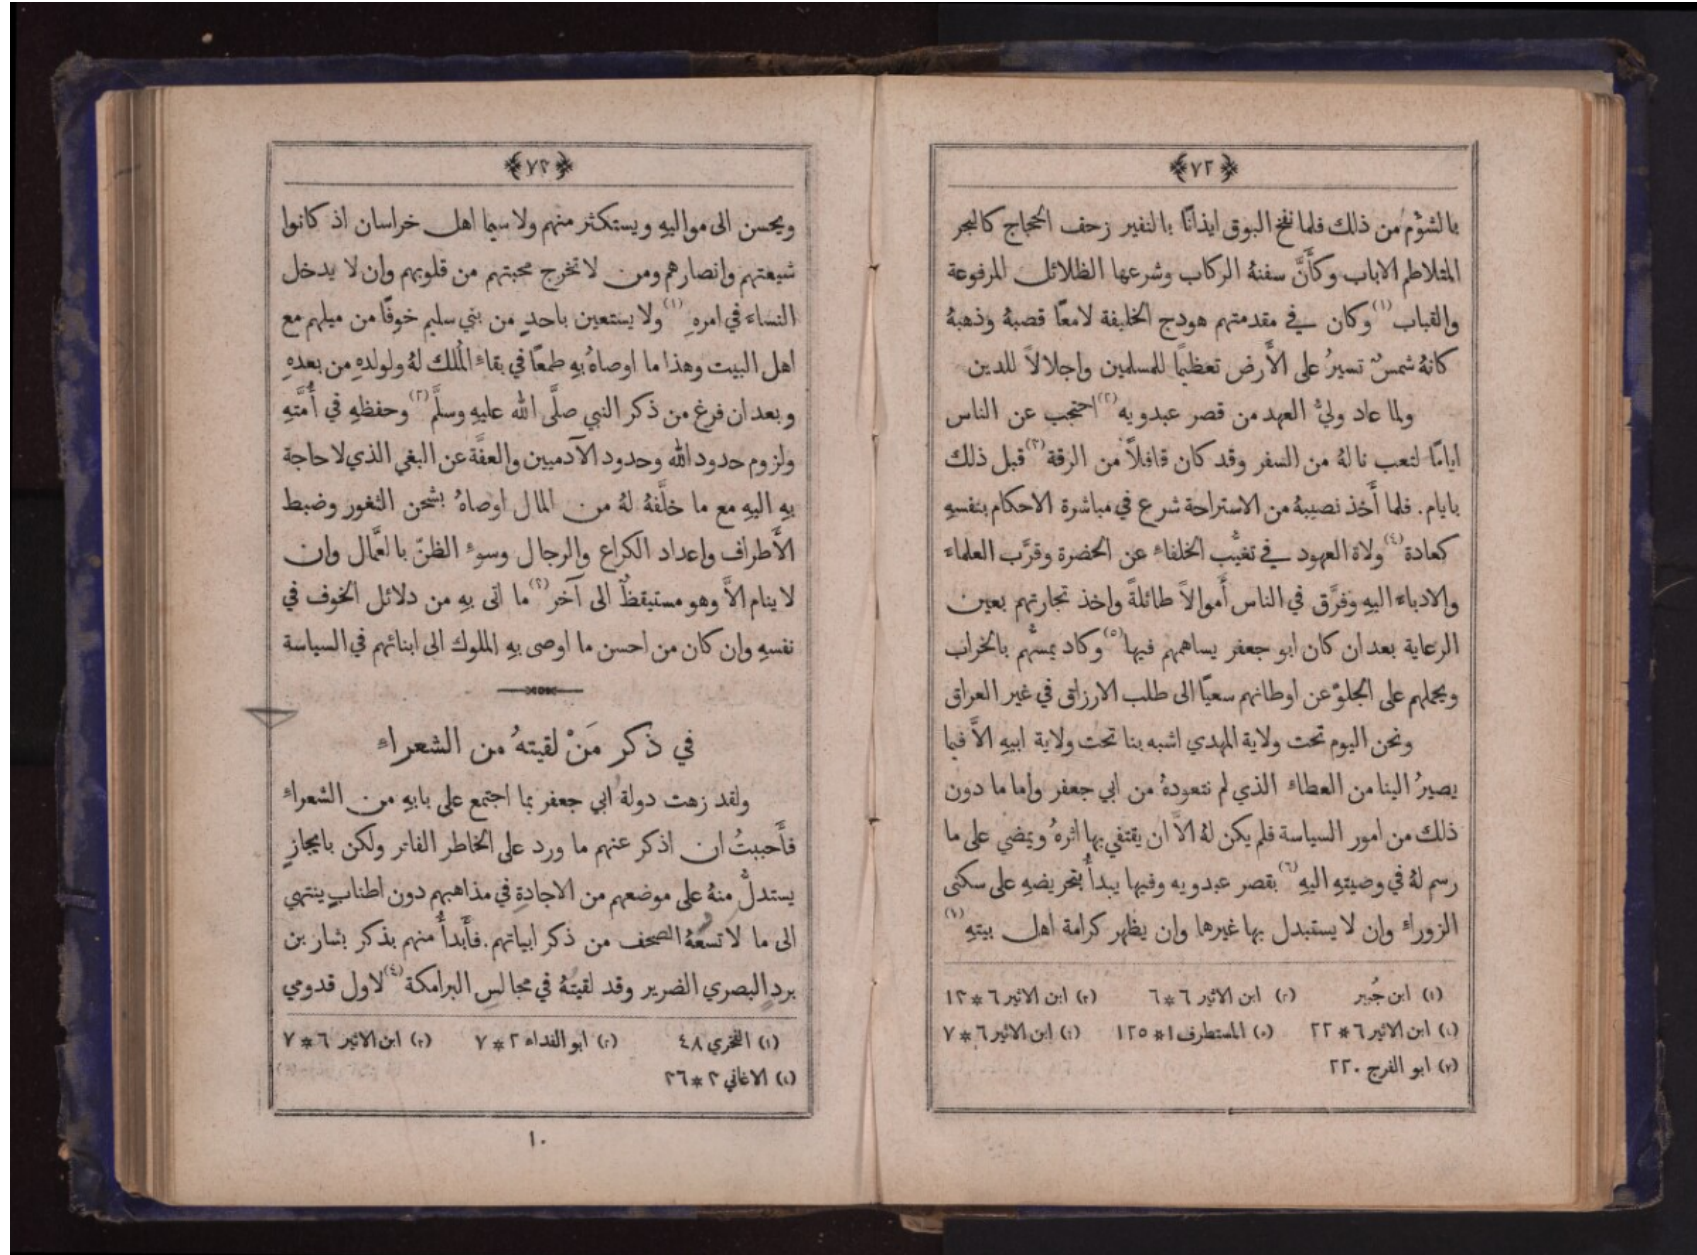 ﴿٧٢﴾
بالشؤم من ذلك فلما نفخ البوق ايذانًا بالنفير زحف الحجاج كالبحر
المتلاطم الاباب وكأَنَّ سفنهُ الركاب وشرعها الظلائل المرفوعة
والقباب (١) وكان في مقدمتهم هودج الخليفة لامعًا قصبهُ وذهبهُ
كانهُ شمسٌ تسيرُ على الأَرض تعظيمًا للمسلمين واجلالاً للدين
ولما عاد وليُّ العهد من قصر عبدويه (٢) احتجب عن الناس
ايامًا لتعب نالهُ من السفر وقد كان قافلاً من الرقة (٣) قبل ذلك
بايام. فلما أَخذ نصيبهُ من الاستراحة شرع في مباشرة الاحكام بنفسهِ
كعادة (٤) ولاة العهود في تغيُّب الخلفاء عن الحضرة وقرَّب العلماء
والادباء اليهِ وفرَّق في الناس أَموالاً طائلةً واخذ تجارتهم بعين
الرعاية بعد ان كان ابو جعفر يساهمهم فيها (٥) وكاد يمسُّهم بالخراب
ويحملهم على الجلوّ عن اوطانهم سعيًا الى طلب الارزاق في غير العراق
ونحن اليوم تحت ولاية المهدي اشبه بنا تحت ولاية ابيهِ الاَّ فيما
يصيرُ الينا من العطاء الذي لم نتعودهُ من ابي جعفر واما ما دون
ذلك من امور السياسة فلم يكن لهُ الاَّ ان يقتفي بها اثرهُ ويمضي على ما
رسم لهُ في وصيتهِ اليهِ (٦) بقصر عبدويه وفيها يبدأُ بتحريضهِ على سكنى
الزوراء وان لا يستبدل بها غيرها وان يظهر كرامة اهل بيتهِ (٧)
(١) ابن جُبير (٢) ابن الاثير ٦*٦ (٣) ابن الاثير ٦*١٣
(٤) ابن الاثير ٦*٢٢ (٥) المستطرف ١*١٢٥ (٦) ابن الاثير ٦*٧
(٧) ابو الفرج ٢٢٠
﴿٧٣﴾
ويحسن الى مواليهِ ويستكثر منهم ولا سيما اهل خراسان اذ كانوا
شيعتهم وانصارهم ومن لا تخرج محبتهم من قلوبهم وان لا يدخل
النساء في امرهِ (١) ولا يستعين باحدٍ من بني سليم خوفًا من ميلهم مع
اهل البيت وهذا ما اوصاهُ بهِ طمعًا في بقاء المُلك لهُ ولولدهِ من بعدهِ
وبعد ان فرغ من ذكر النبي صلَّى الله عليهِ وسلَّم (٢) وحفظهِ في أُمَّتهِ
ولزوم حدود الله وحدود الآدميين والعفَّة عن البغي الذي لا حاجة
بهِ اليهِ مع ما خلَّفهُ لهُ من المال اوصاهُ بشحن الثغور وضبط
الأَطراف واعداد الكراع والرجال وسوء الظنّ بالعمَّال وان
لا ينام الاَّ وهو مستيقظٌ الى آخر (٣) ما اتى بهِ من دلائل الخوف في
نفسهِ وان كان من احسن ما اوصى بهِ الملوك الى ابنائهم في السياسة
في ذكر مَنْ لقيتهُ من الشعراء
ولقد زهت دولة ابي جعفر بما اجتمع على بابهِ من الشعراء
فأَحببتُ ان اذكر عنهم ما ورد على الخاطر الفاتر ولكن بايجازٍ
يستدلُّ منهُ على موضعهم من الاجادةِ في مذاهبهم دون اطنابٍ ينتهي
الى ما لا تسعهُ الصحف من ذكر ابياتهم. فأَبدأُ منهم بذكر بشار بن
بردٍ البصري الضرير وقد لقيتهُ في مجالس البرامكة (٤) لاول قدومي
(١) الفخري ٤٨ (٢) ابو الفداء ٢*٧ (٣) ابن الاثير ٦*٧
(٤) الاغاني ٣*٣٦
١٠